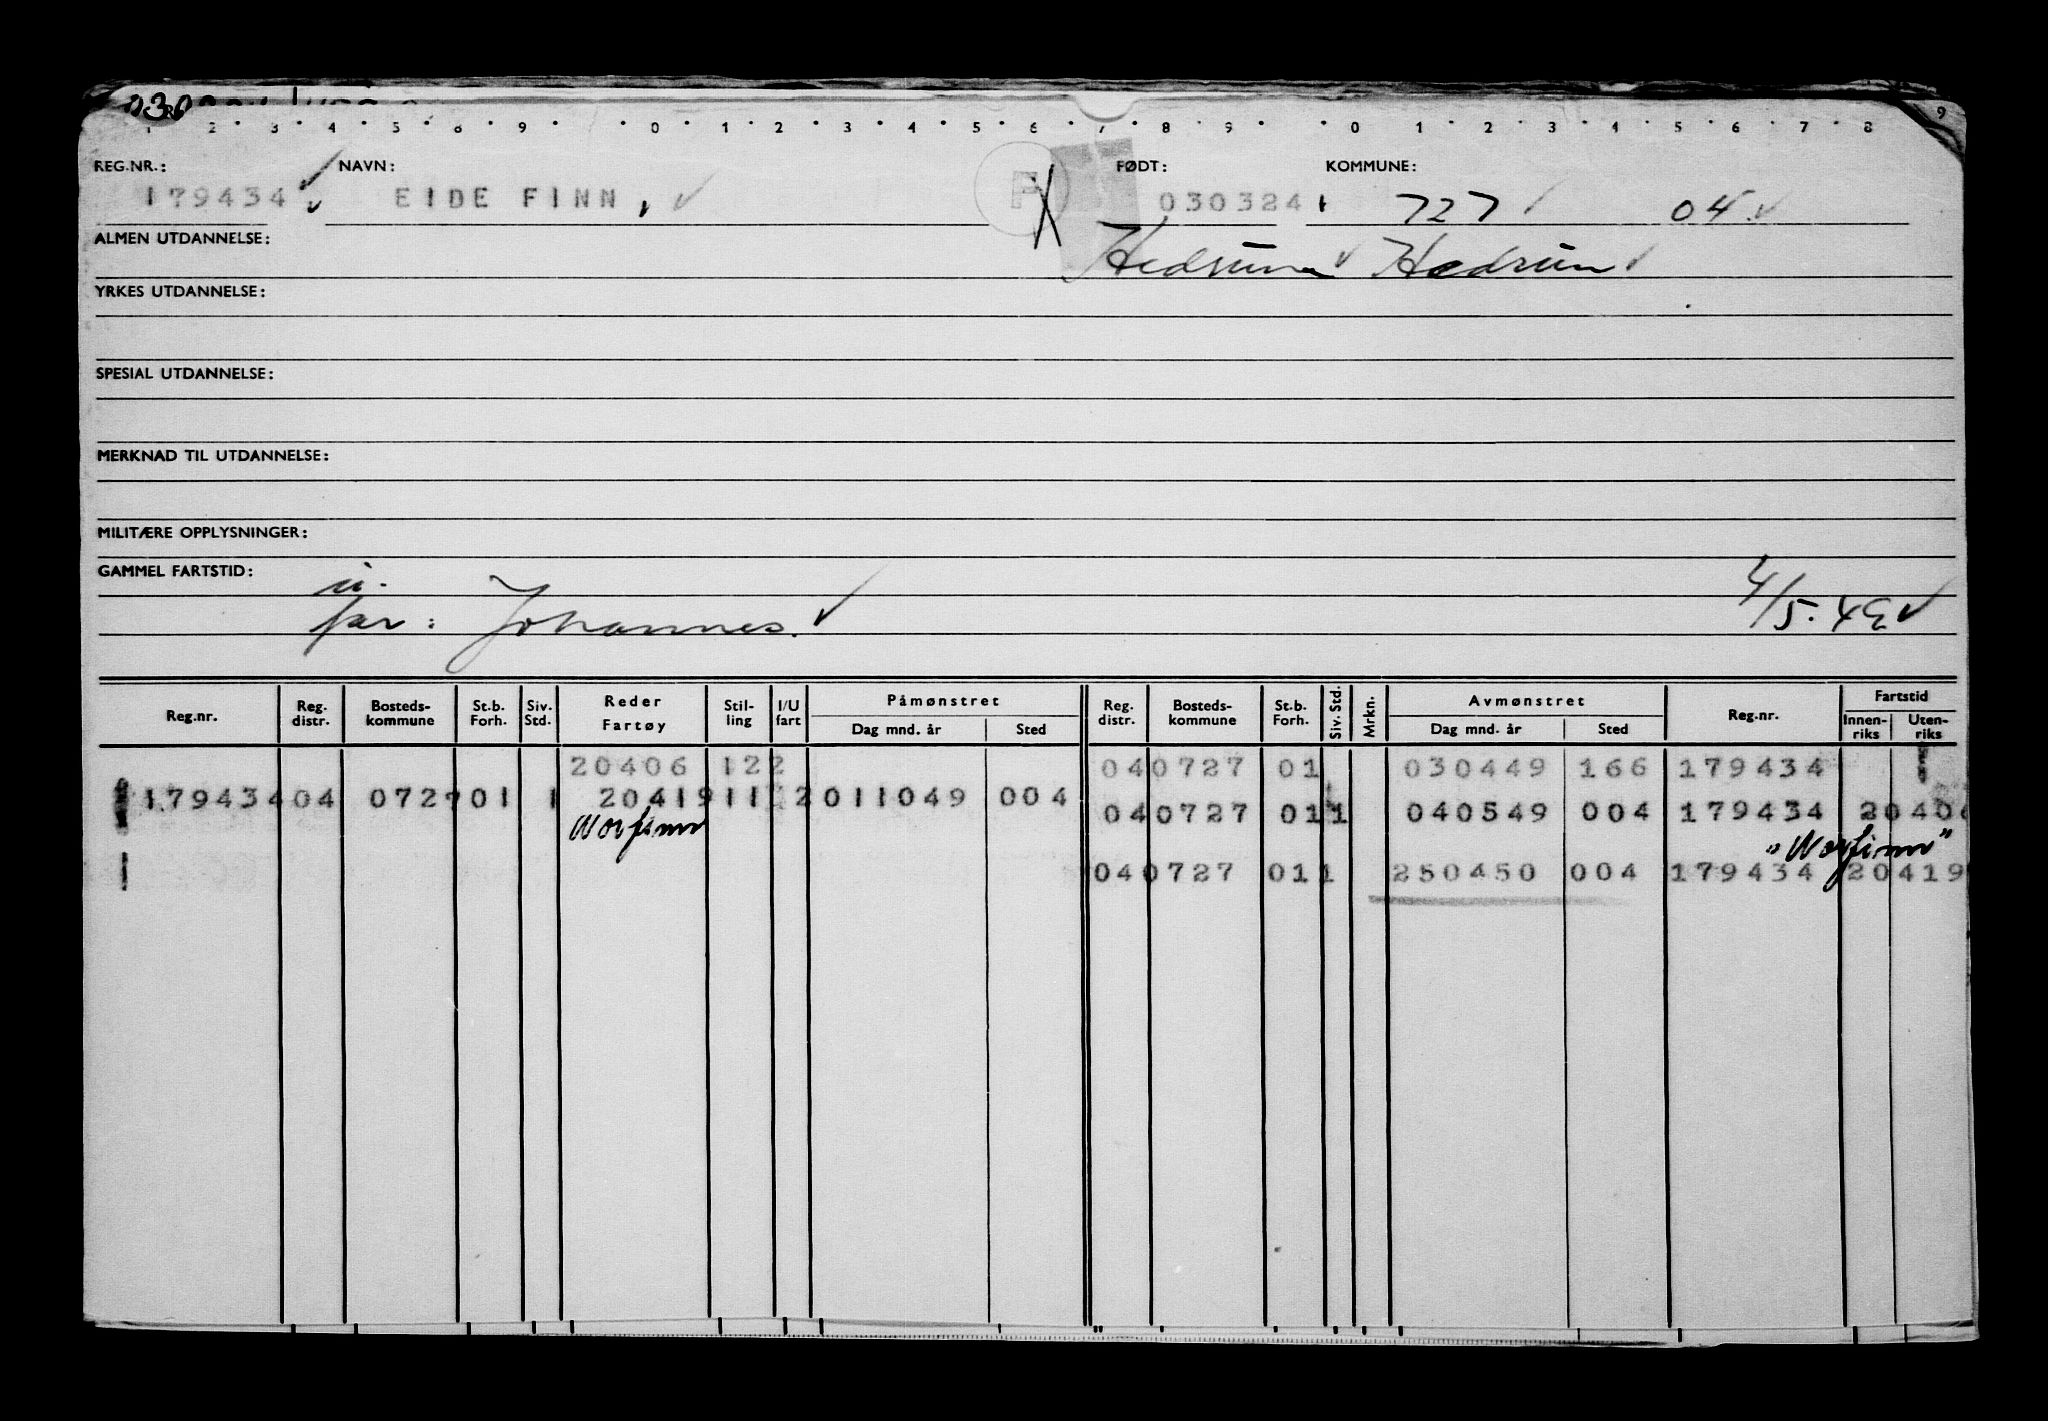 030
1 2 3 4 5 6 9 0 1 2 3 4 5 6 7 8 9 0 1 2 3 4 5 6 7 8 9
REG.NR.: NAVN: FØDT: KOMMUNE:
179434 EIDE FINN F 030324 727 04
ALMEN UTDANNELSE: Hedrum Hedrum
YRKES UTDANNELSE:
SPESIAL UTDANNELSE:
MERKNAD TIL UTDANNELSE:
MILITÆRE OPPLYSNINGER:
GAMMEL FARTSTID:
far: Johannes. 4/5.49
Reg.nr. Reg. distr. Bosteds-kommune St.b. Forh. Siv. Std. Reder Fartøy Stil-ling I/U fart Påmønstret Dag mnd. år Sted Reg. distr. Bosteds-kommune St.b. Forh. Siv. Std. Mrkn. Avmønstret Dag mnd. år Sted Reg.nr. Fartstid Innen-riks Uten-riks
20406 122 040727 01 030449 166 179434
179434 04 0727 01 1 20419 11 2 011049 004
040727 011 040549 004 179434 20406
Norfinn
"Norfinn"
040727 011 250450 004 179434 20419